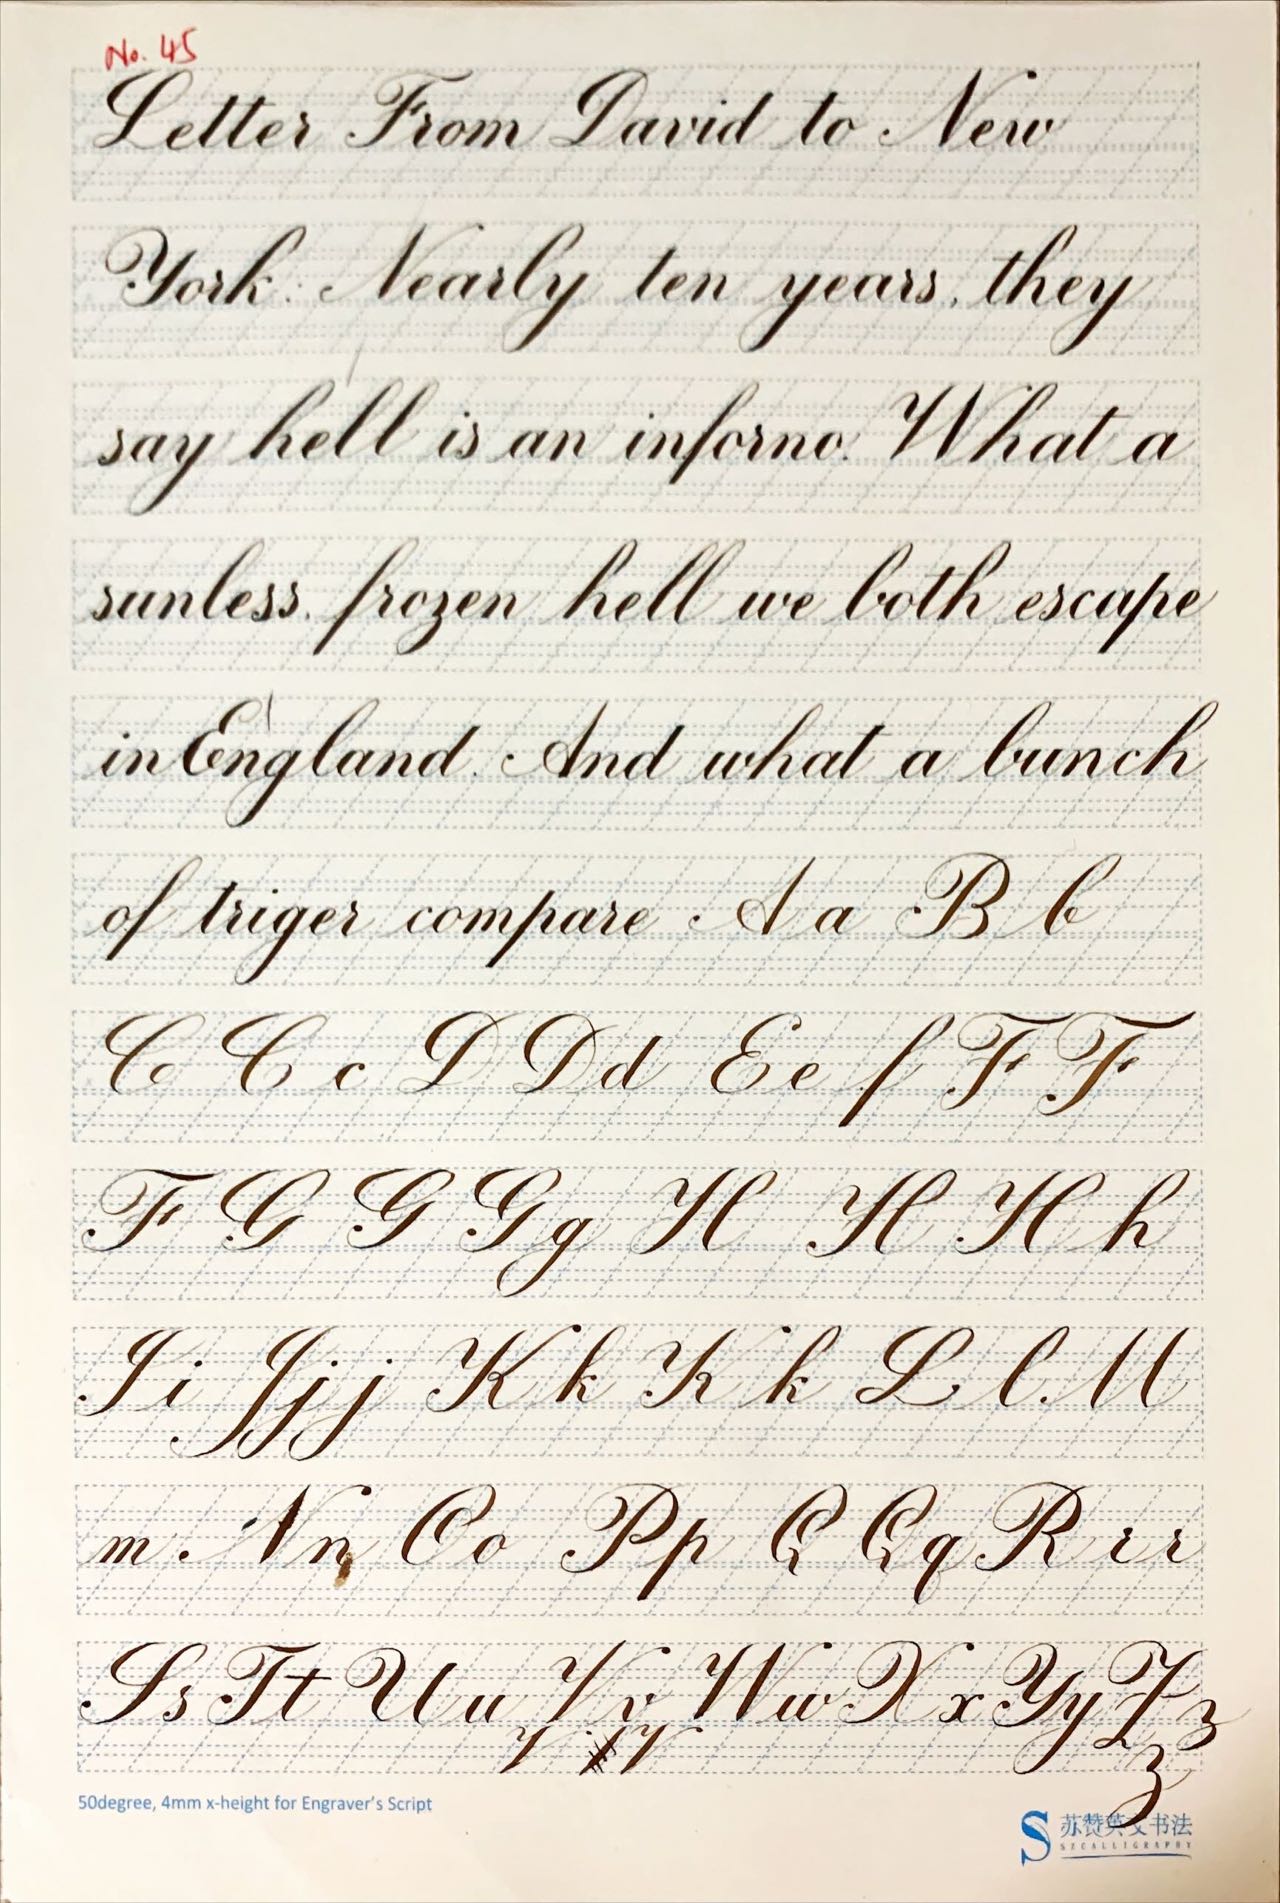 No. 45
Letter From David to New
York. Nearly ten years, they
say hell is an inforno. What a
sunless, frozen hell we both escape
in England. And what a bunch
of triger compare A a B b
C C c D D d E e f F F
F G G G g H H H h
I i J j j K k K k L l. M
m. N n O o P p Q Q q R r r
S s T t U u V v W w X x Y y Z z
z
50degree, 4mm x-height for Engraver's Script
S 苏赞英文书法
SZCALLIGRAPHY